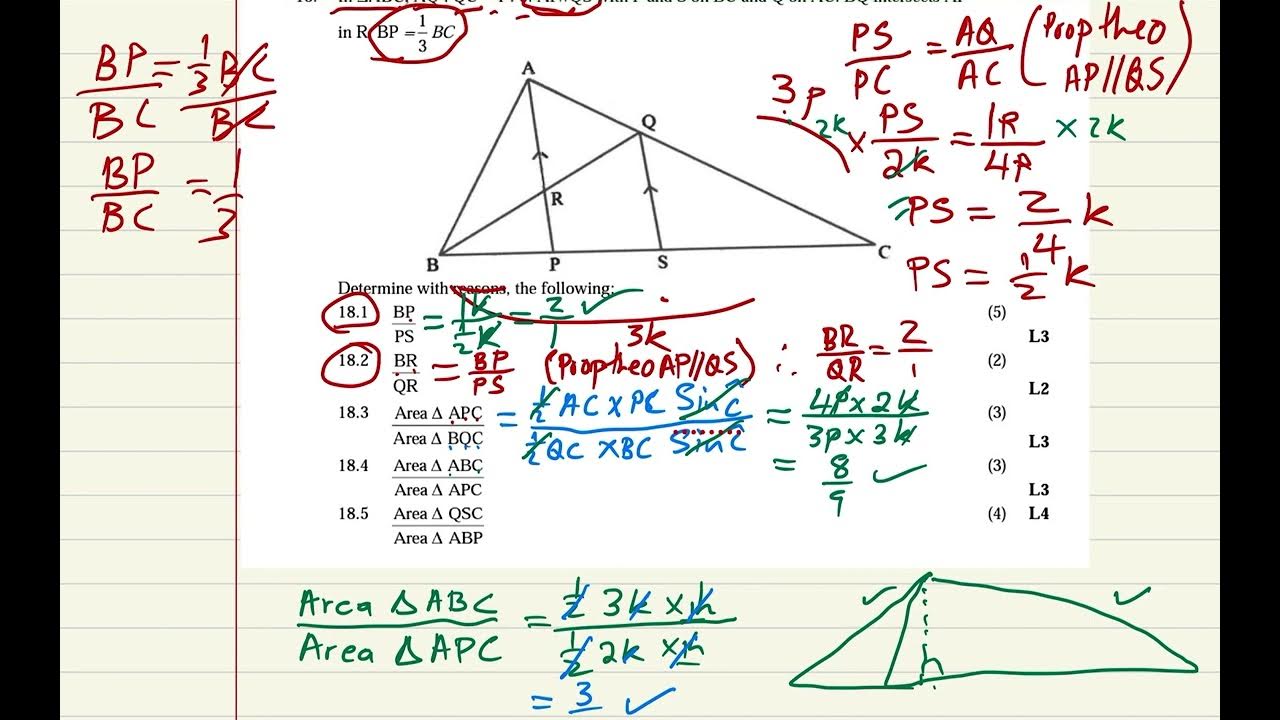 in R. BP = 1/3 BC
BP/BC = 1/3 BC/BC
BP/BC = 1/3
PS/PC = AQ/AC (Prop theo AP//QS)
3p
2k × PS/2k = 1P/4P × 2k
PS = 2/4 k
PS = 1/2 k
A
Q
R
B
P
S
C
Determine with reasons, the following:
18.1 BP/PS = 1k/(1/2 k) = 2/1 (5)
3k
L3
18.2 BR/QR = BP/PS (Prop theo AP//QS) ∴ BR/QR = 2/1 (2)
L2
18.3 Area Δ APC/Area Δ BQC = 1/2 AC × PC Sin C/1/2 QC × BC Sin C = 4P × 2k/3P × 3k (3)
L3
= 8/9
18.4 Area Δ ABC/Area Δ APC (3)
L3
18.5 Area Δ QSC/Area Δ ABP (4) L4
Area Δ ABC/Area Δ APC = 1/2 3k × h/1/2 2k × h
= 3
h